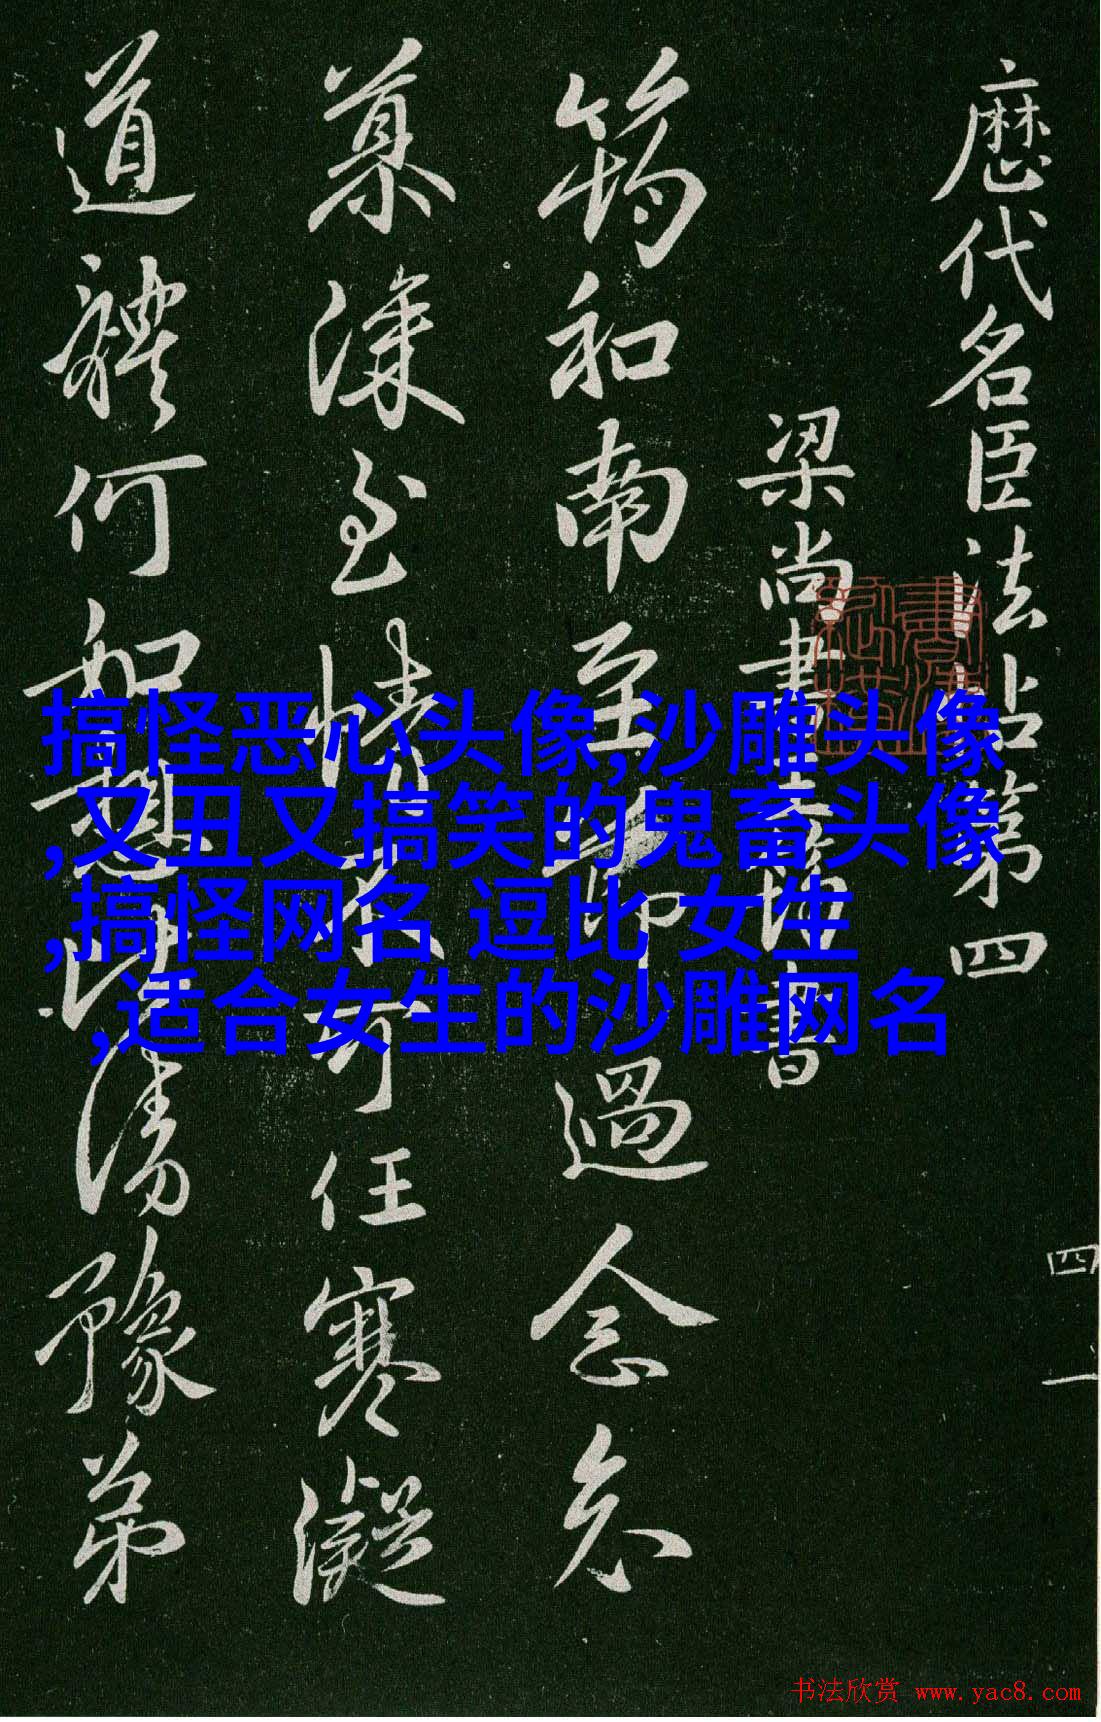 歷代名臣法帖第四
梁尚書王筠書
筠和南至節過念念
㒵深至情不可任寒凝
道體何如想比清豫弟
四
一
搞怪恶心头像,沙雕头像
,又丑又搞笑的鬼畜头像
,搞怪网名 逗比 女生
,适合女生的沙雕网名
书法欣赏 www.yac8.com